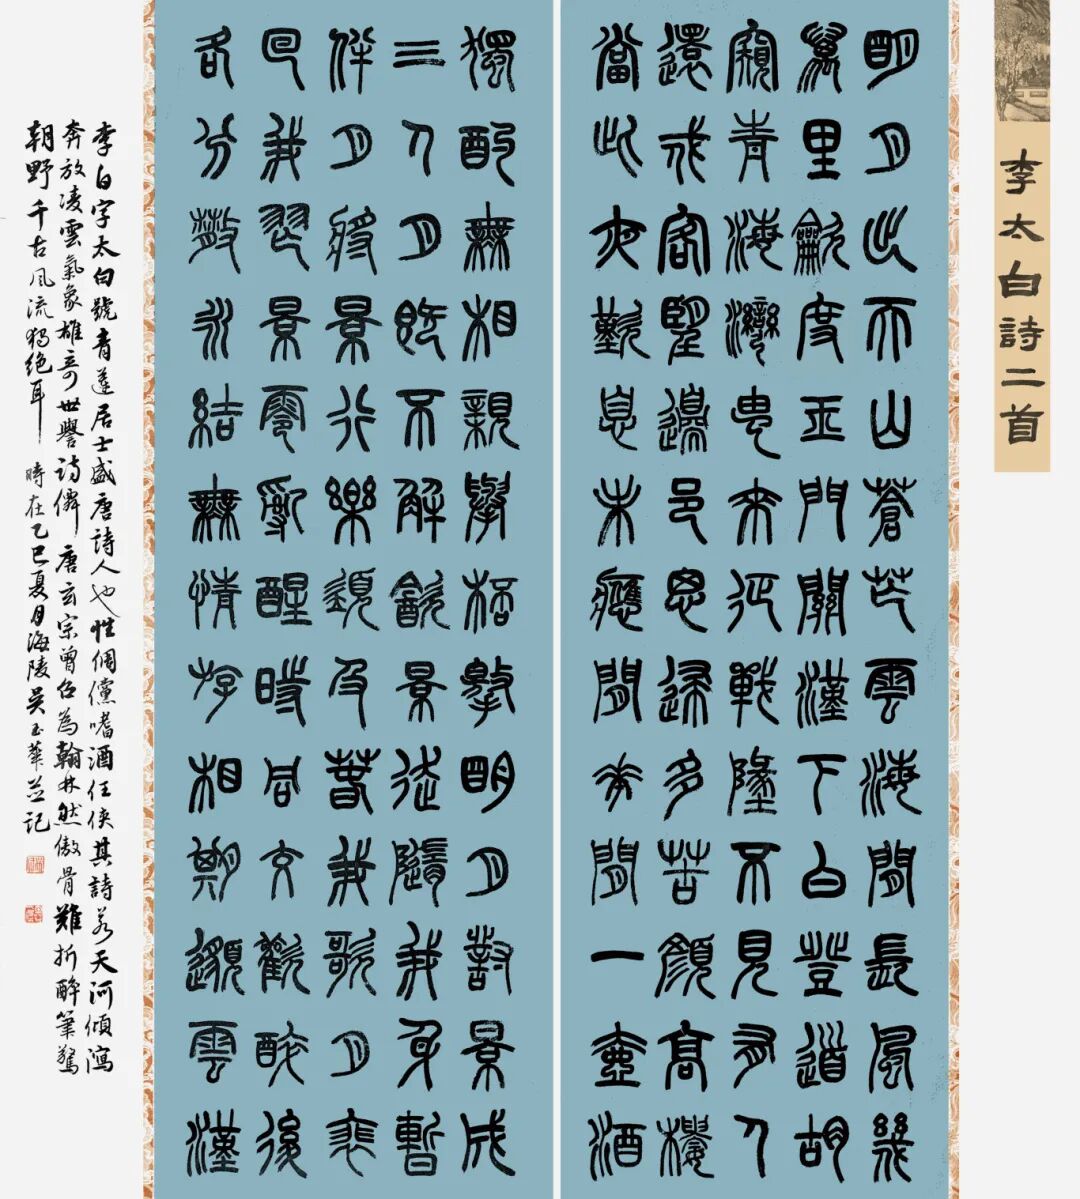 李太白詩二首
明月出天山蒼芒雲海間長風幾
萬里龡度玉門關漢下白登道胡
窺青海灣由來征戰地不見有人
還戍客望邊邑思歸多苦顏高樓
當此夜歎息未應閒花間一壺酒
獨酌無相親舉杯邀明月對景成
三人月既不解飲景徒隨我身暫
伴月將景行樂須及春我歌月裵
回我舞景零亂醒時同交歡醉後
各分散永結無情游相期邈雲漢
李白字太白號青蓮居士盛唐詩人也性倜儻嗜酒任俠其詩若天河傾瀉
奔放凌雲氣象雄奇世譽詩僊唐玄宗曾召為翰林然傲骨難折醉筆驚
朝野千古風流獨絕耳 時在乙巳夏月海陵吳玉華並記